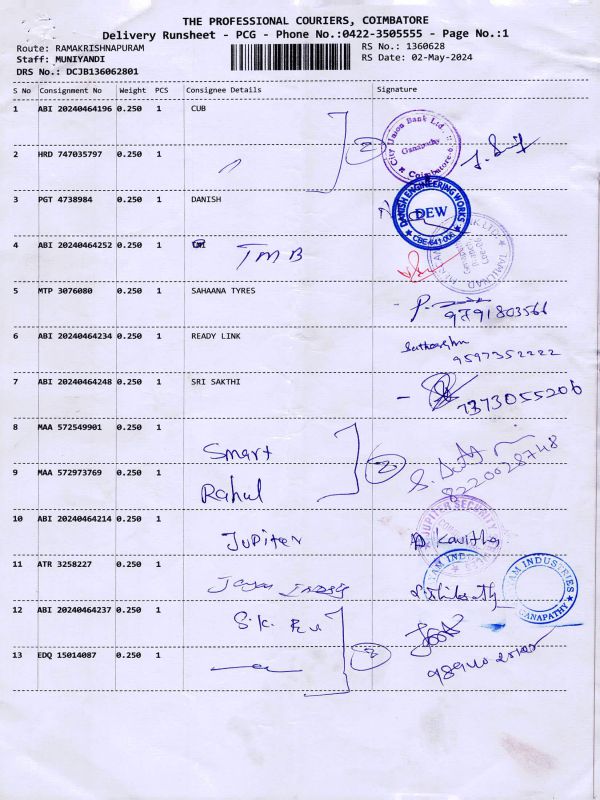 THE PROFESSIONAL COURIERS, COIMBATORE
Delivery Runsheet - PCG - Phone No.:0422-3505555 - Page No.:1
Route: RAMAKRISHNAPURAM RS No.: 1360628
Staff: MUNIYANDI RS Date: 02-May-2024
DRS No.: DCJB136062801
S No Consignment No Weight PCS Consignee Details Signature
1 ABI 20240464196 0.250 1 CUB
City Union Bank Ltd. Ganapathy Coimbatore
2
2 HRD 747035797 0.250 1
3 PGT 4738984 0.250 1 DANISH
DANISH ENGINEERING WORKS DEW CBE-641 006
4 ABI 20240464252 0.250 1 TMB
5 MTP 3076080 0.250 1 SAHAANA TYRES
9791803566
6 ABI 20240464234 0.250 1 READY LINK
9597352222
7 ABI 20240464248 0.250 1 SRI SAKTHI
7373055206
8 MAA 572549901 0.250 1 Smart
2
8220028748
9 MAA 572973769 0.250 1 Rahul
10 ABI 20240464214 0.250 1 Jupiter Kavitha
JUPITER SECURITY
11 ATR 3258227 0.250 1
INDUSTRIES GANAPATHY
12 ABI 20240464237 0.250 1 S.K.
13 EDQ 15014087 0.250 1